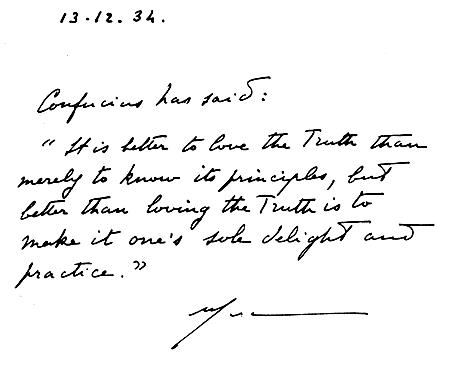 13.12.34.
Confucius has said:
"It is better to love the Truth than
merely to know its principles, but
better than loving the Truth is to
make it one's sole delight and
practice."